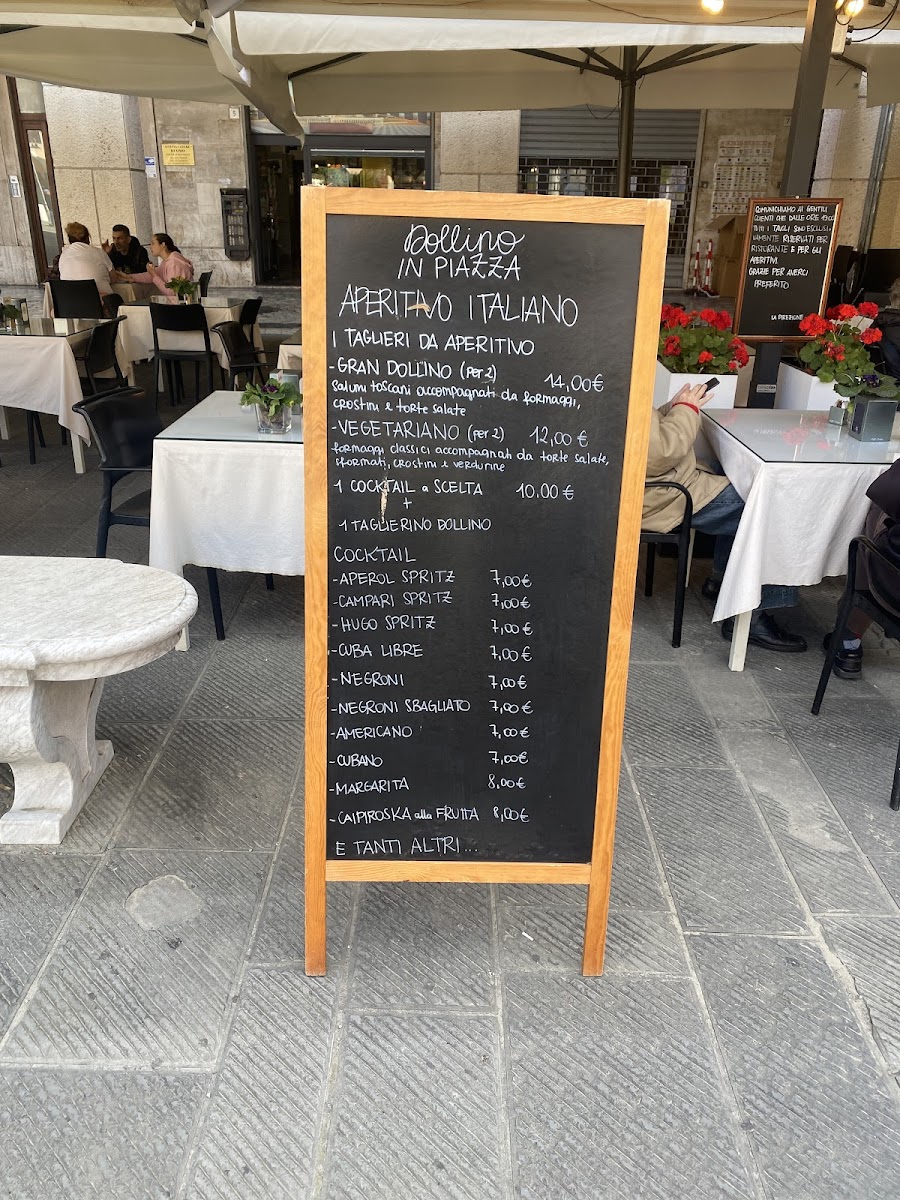 Dollino
IN PIAZZA
APERITIVO ITALIANO
I TAGLIERI DA APERITIVO
-GRAN DOLLINO (per 2) 14,00€
salumi toscani accompagnati da formaggi,
crostini e torte salate
-VEGETARIANO (per 2) 12,00 €
formaggi classici accompagnati da torte salate,
sformati, crostini e verdurine
1 COCKTAIL a SCELTA 10.00 €
+
1 TAGLIERINO DOLLINO
COCKTAIL
-APEROL SPRITZ 7,00€
-CAMPARI SPRITZ 7,00€
-HUGO SPRITZ 7,00€
-CUBA LIBRE 7,00€
-NEGRONI 7,00€
-NEGRONI SBAGLIATO 7,00€
-AMERICANO 7,00€
-CUBANO 7,00€
-MARGARITA 8,00€
-CAIPIROSKA alla FRUTTA 8,00€
E TANTI ALTRI...
COMUNICHIAMO AI GENTILI
CLIENTI CHE DALLE ORE 19:00
TUTTI I TAVOLI SONO ESCLUSI-
VAMENTE RISERVATI PER
RISTORANTE E PER GLI
APERITIVI.
GRAZIE PER AVERCI
PREFERITO
LA DIREZIONE